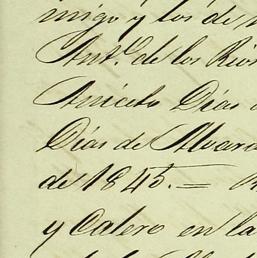 migo y los de
Ant.º de los Rios
Aniceto Dias
Dias de Alvara
de 1845. =
y Calero en la